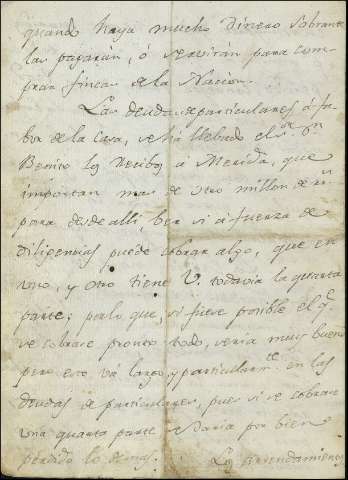 quando haya mucho Dinero Sobrante
las pagarán, ó servirán para com
prar fincas de la Nacion.
Las deudas de particulares á fa
bor de la Casa, se ha llebado el S.r D.n
Benito los Recibos á Merida, que
importan mas de otro millon de r.s
para desde alli, ber si á fuerza de
diligencias puede cobrar algo, que en
uno, y otro tiene V. todavia la quarta
parte; por lo que, si fuese posible el q.e
se cobrase pronto todo, seria muy bueno
pero esto vá largo, y particularm.te en las
deudas de particulares, pues si se cobrase
una quarta parte Daria por bien
perdido lo demas. Los arrendamientos